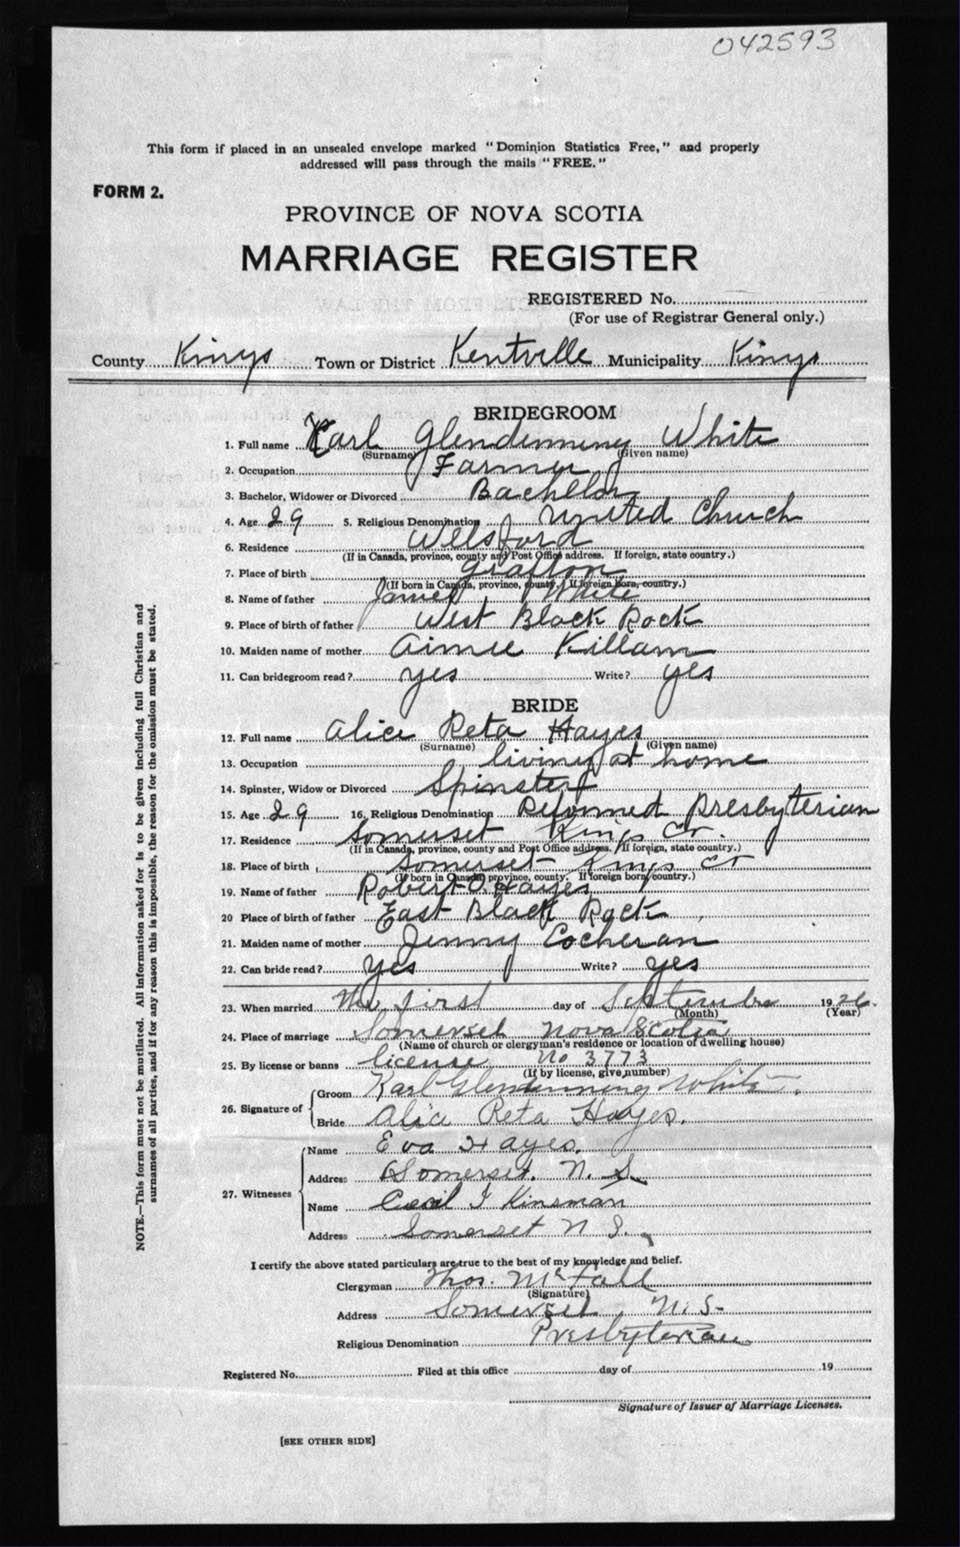 042593
This form if placed in an unsealed envelope marked "Dominion Statistics Free," and properly
addressed will pass through the mails "FREE."
FORM 2.
PROVINCE OF NOVA SCOTIA
MARRIAGE REGISTER
REGISTERED No.
(For use of Registrar General only.)
County Kings Town or District Kentville Municipality Kings
BRIDEGROOM
1. Full name Karl Glendenning White
(Surname) (Given name)
2. Occupation Farmer
3. Bachelor, Widower or Divorced Bachelor
4. Age 29 5. Religious Denomination United Church
6. Residence Welsford
(If in Canada, province, county and Post Office address. If foreign, state country.)
7. Place of birth Grafton
(If born in Canada, province, county. If foreign born, country.)
8. Name of father James White
9. Place of birth of father West Black Rock
10. Maiden name of mother Aimee Killam
11. Can bridegroom read? yes Write? yes
BRIDE
12. Full name Alice Reta Hayes
(Surname) (Given name)
13. Occupation living at home
14. Spinster, Widow or Divorced Spinster
15. Age 29 16. Religious Denomination Reformed Presbyterian
17. Residence Somerset Kings Co.
(If in Canada, province, county and Post Office address. If foreign, state country.)
18. Place of birth Somerset Kings Co
(If born in Canada, province, county. If foreign born, country.)
19. Name of father Robert O. Hayes
20 Place of birth of father East Black Rock
21. Maiden name of mother Jenny Cocheran
22. Can bride read? yes Write? yes
23. When married the first day of September 1926.
(Month) (Year)
24. Place of marriage Somerset Nova Scotia
(Name of church or clergyman's residence or location of dwelling house)
25. By license or banns license No 3773
(If by license, give number)
26. Signature of Groom Karl Glendenning White.
Bride Alice Reta Hayes.
27. Witnesses Name Eva Hayes.
Address Somerset. N. S.
Name Cecil I Kinsman
Address Somerset N S.
I certify the above stated particulars are true to the best of my knowledge and belief.
Clergyman Thos. McFall
(Signature)
Address Somerset, N.S.
Religious Denomination Presbyterian
Registered No. Filed at this office day of 19
Signature of Issuer of Marriage Licenses.
[SEE OTHER SIDE]
NOTE.—This form must not be mutilated. All information asked for is to be given including full Christian and
surnames of all parties, and if for any reason this is impossible, the reason for the omission must be stated.